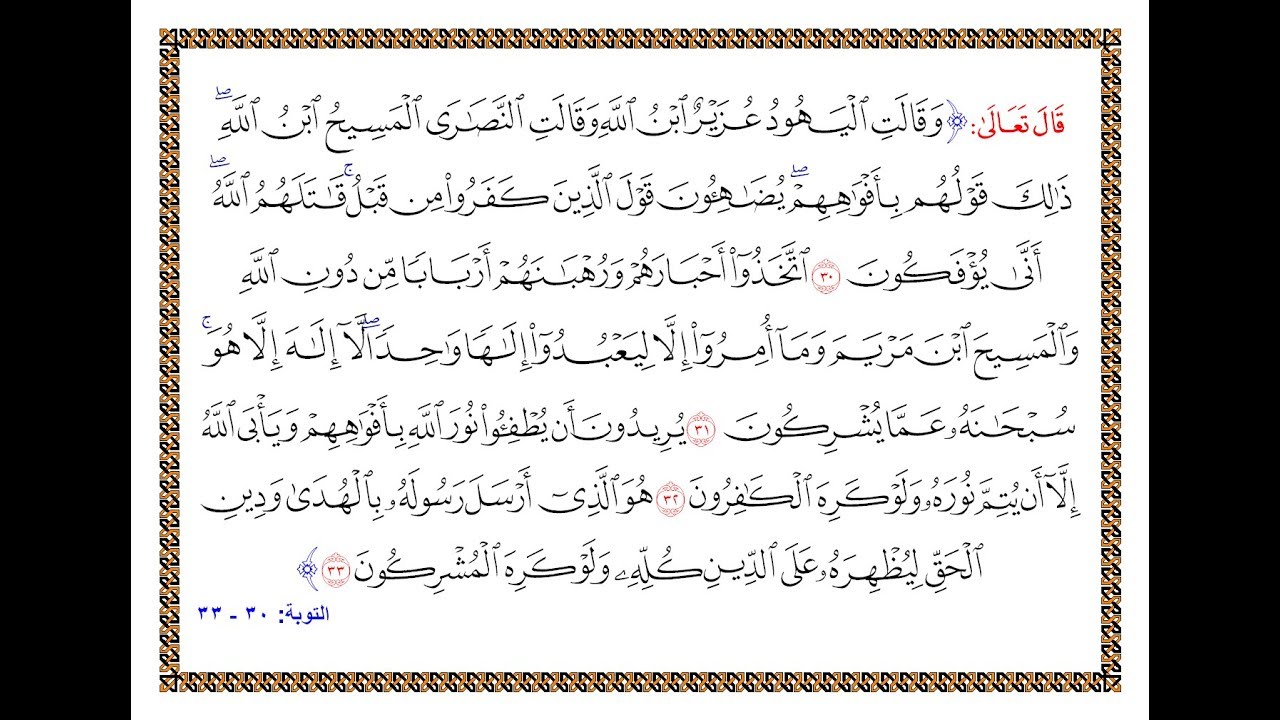 قَالَ تَعَالَىٰ: ﴿وَقَالَتِ ٱلۡيَهُودُ عُزَيۡرٌ ٱبۡنُ ٱللَّهِ وَقَالَتِ ٱلنَّصَٰرَى ٱلۡمَسِيحُ ٱبۡنُ ٱللَّهِۖ
ذَٰلِكَ قَوۡلُهُم بِأَفۡوَٰهِهِمۡۖ يُضَٰهِـُٔونَ قَوۡلَ ٱلَّذِينَ كَفَرُواْ مِن قَبۡلُۚ قَٰتَلَهُمُ ٱللَّهُۖ
أَنَّىٰ يُؤۡفَكُونَ ٣٠ ٱتَّخَذُوٓاْ أَحۡبَارَهُمۡ وَرُهۡبَٰنَهُمۡ أَرۡبَابٗا مِّن دُونِ ٱللَّهِ
وَٱلۡمَسِيحَ ٱبۡنَ مَرۡيَمَ وَمَآ أُمِرُوٓاْ إِلَّا لِيَعۡبُدُوٓاْ إِلَٰهٗا وَٰحِدٗاۖ لَّآ إِلَٰهَ إِلَّا هُوَۚ
سُبۡحَٰنَهُۥ عَمَّا يُشۡرِكُونَ ٣١ يُرِيدُونَ أَن يُطۡفِـُٔواْ نُورَ ٱللَّهِ بِأَفۡوَٰهِهِمۡ وَيَأۡبَى ٱللَّهُ
إِلَّآ أَن يُتِمَّ نُورَهُۥ وَلَوۡ كَرِهَ ٱلۡكَٰفِرُونَ ٣٢ هُوَ ٱلَّذِيٓ أَرۡسَلَ رَسُولَهُۥ بِٱلۡهُدَىٰ وَدِينِ
ٱلۡحَقِّ لِيُظۡهِرَهُۥ عَلَى ٱلدِّينِ كُلِّهِۦ وَلَوۡ كَرِهَ ٱلۡمُشۡرِكُونَ ٣٣﴾
التوبة: ٣٠ - ٣٣